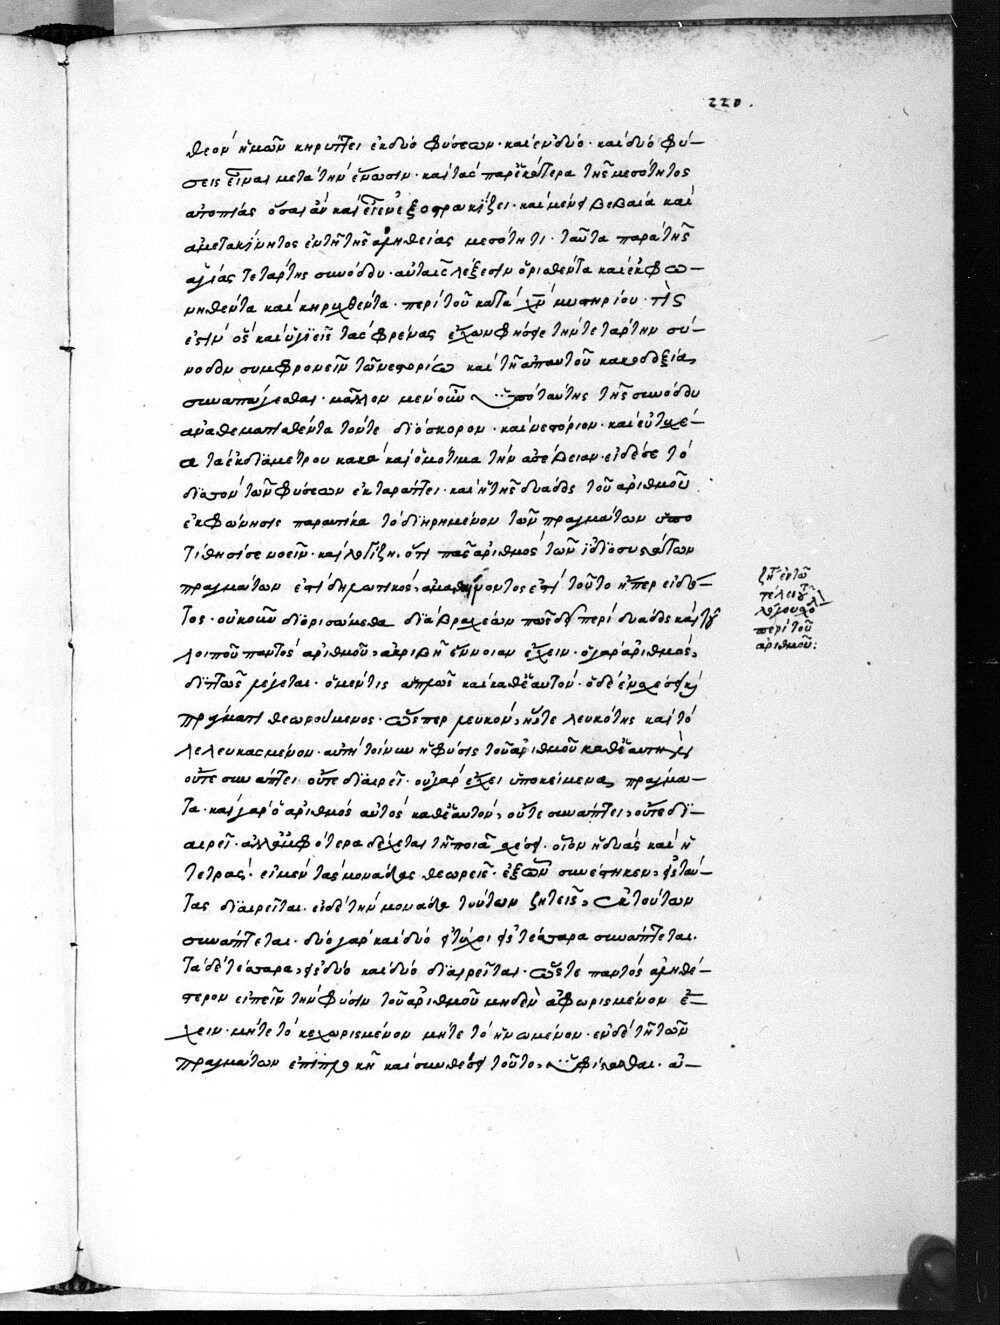 220.
θεὸν ἡμῶν κηρύττει ἐκ δύο φύσεων· καὶ ἐν δύο· καὶ δύο φύ-
σεις εἶναι μετὰ τὴν ἕνωσιν· καὶ τὰς παρ' ἑκάτερα τῆς μεσότητος
ἀτοπίας ὅσαι ἂν καὶ εἶεν ἐξοστρακίζει· καὶ μένει βεβαία καὶ
ἀμετακίνητος ἐν τῇ τῆς ἀληθείας μεσότητι· ταῦτα παρὰ τῆς
ἁγίας τετάρτης συνόδου· αὐταῖς λέξεσιν ὁρισθέντα καὶ ἐκφω-
νηθέντα καὶ κηρυχθέντα· περὶ τοῦ κατὰ χν μυστηρίου· τίς
ἐστιν ὃς καὶ ὑγιεῖς τὰς φρένας ἔχων φήσει τὴν τετάρτην σύ-
νοδον συμφρονεῖν τῷ νεστορίῳ καὶ τῇ αὐτοῦ κακοδοξίᾳ
συναπάγεσθαι· μᾶλλον μὲν οὖν ὑπὸ ταύτης τῆς συνόδου
ἀναθεματισθέντα τόν τε διόσκορον· καὶ νεστόριον· καὶ εὐτυχέ-
α τὰ ἐκ διαμέτρου κακὰ καὶ ὁμότιμα τὴν ἀσέβειαν· εἰ δέ σε τὸ
διττὸν τῶν φύσεων ἐκταράττει· καὶ ἡ τῆς δυάδος τοῦ ἀριθμοῦ
ἐκφώνησις παραυτίκα τὸ διῃρημένον τῶν πραγμάτων ὑπο
τίθησί σε νοεῖν· καὶ λογίζῃ, ὅτι πᾶς ἀριθμὸς τῶν ἰδιοσυστάτων
πραγμάτων ἐστὶ δηλωτικός, ἀμαθαίνοντος ἐστὶ τοῦτο ἤπερ εἰδό-
τος· οὐκοῦν διορισώμεθα διὰ βραχέων πῶς δεῖ περὶ δυάδος καὶ τοῦ
λοιποῦ παντὸς ἀριθμοῦ, ἀκριβῆ ἔννοιαν ἔχειν· ὁ γὰρ ἀριθμός,
διττῶς λέγεται· ὁ μέν τις ἁπλῶς καὶ καθ' ἑαυτόν· ὁ δὲ ἐν σχέσει καὶ
πράγματι θεωρούμενος· ὥσπερ λευκόν, ἥ τε λευκότης καὶ τὸ
λελευκασμένον· αὕτη τοίνυν ἡ φύσις τοῦ ἀριθμοῦ καθ' ἑαυτὴν
οὔτε συνάπτει οὔτε διαιρεῖ· οὐ γὰρ ἔχει ὑποκείμενα πράγμα-
τα· καὶ γὰρ ὁ ἀριθμὸς αὐτὸς καθ' ἑαυτόν, οὔτε συνάπτει, οὔτε δι-
αιρεῖ· ἀλλ' ἀμφότερα δέχεται τῇ ποιᾷ σχέσει· οἷον ἡ δυὰς καὶ ἡ
τετράς· εἰ μὲν τὰς μονάδας θεωρεῖς· ἐξ ὧν συνέστηκεν, εἰς ταύ-
τας διαιρεῖται· εἰ δὲ τὴν μονάδα τούτων ζητεῖς, ἐκ τούτων
συνάπτεται· δύο γὰρ καὶ δύο εἰ τύχοι εἰς τέσσαρα συνάπτεται·
τὰ δὲ τέσσαρα, εἰς δύο καὶ δύο διαιρεῖται· ὥστε παντὸς ἀληθέ-
στερον εἰπεῖν τὴν φύσιν τοῦ ἀριθμοῦ μηδὲν ἀφωρισμένον ἔ-
χειν· μήτε τὸ κεχωρισμένον μήτε τὸ ἡνωμένον· ἐν δὲ τῇ τῶν
πραγμάτων ἐπιπλοκῇ καὶ συνθέσει τοῦτο, ὑφίστασθαι· αὐ-
ζη ἐν τῷ
τέλει τοῦ
λόγου
περὶ τοῦ
ἀριθμοῦ: